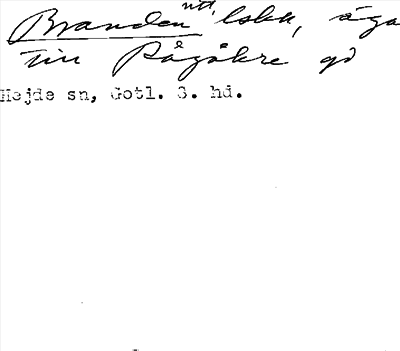 Branden utt. lokk, äga
till Rågåkre gd
Hejde sn, Gotl. S. hd.